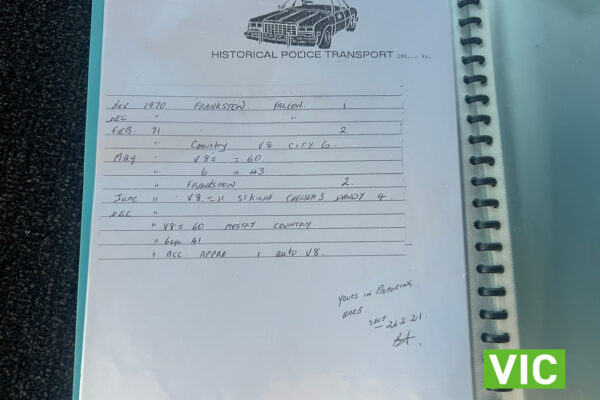 HISTORICAL POLICE TRANSPORT INC... 94.
NOV 1970 FRANKSTON FALCON. 1
DEC " "
FEB 71 2
" Country V8 CITY 6.
MAY " V8s = 60.
" 6 = 43.
" FRANKSTON 2.
June " V8 = 11 ST KILDA CHELSEA 3 DANDY 4
DEC "
" V8 = 60 MOSTLY COUNTRY.
" 6cyl 41
" ALL APPRE 1 auto V8.
YOURS IN MOTORING
BARB
SECT 26.2.21.
VIC